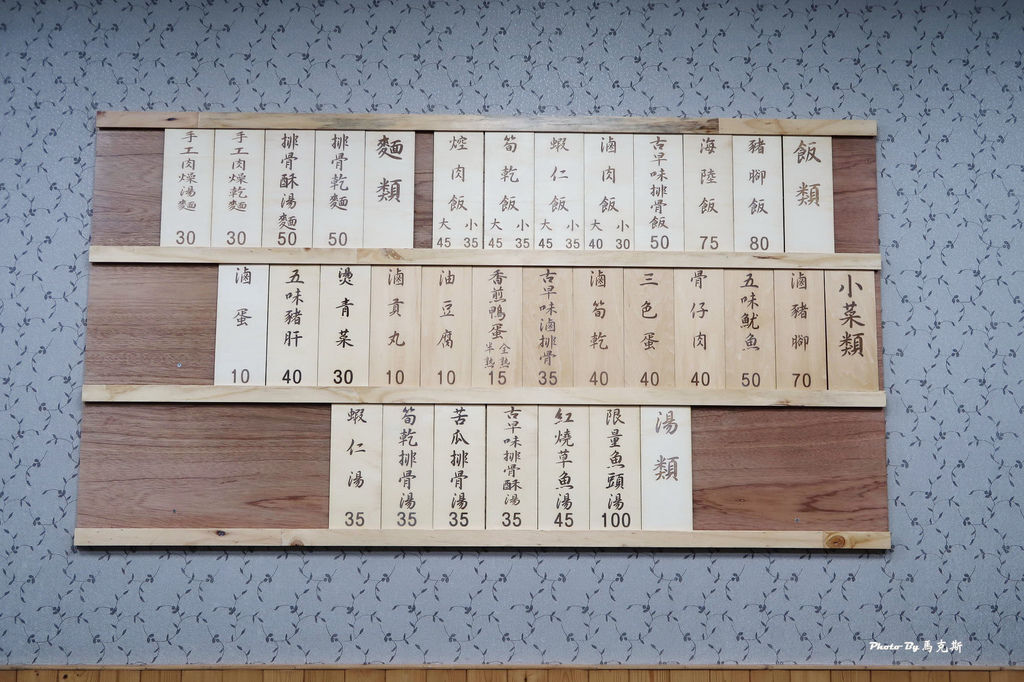 飯類
豬腳飯 80
海陸飯 75
古早味排骨飯 50
滷肉飯 大40 小30
蝦仁飯 大45 小35
筍乾飯 大45 小35
焢肉飯 大45 小35
麵類
排骨乾麵 50
排骨酥湯麵 50
手工肉燥乾麵 30
手工肉燥湯麵 30
小菜類
滷豬腳 70
五味魷魚 50
骨仔肉 40
三色蛋 40
滷筍乾 40
古早味滷排骨 35
香煎鴨蛋 全熟 半熟 15
油豆腐 10
滷貢丸 10
燙青菜 30
五味豬肝 40
滷蛋 10
湯類
限量魚頭湯 100
紅燒草魚湯 45
古早味排骨酥湯 35
苦瓜排骨湯 35
筍乾排骨湯 35
蝦仁湯 35
Photo By 馬克斯